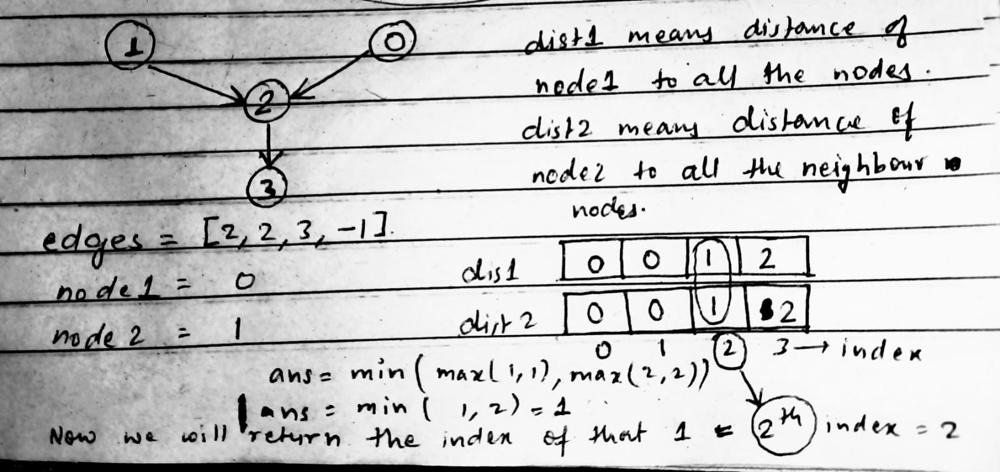 1
0
2
3
dist1 means distance of
node1 to all the nodes.
dist2 means distance of
node2 to all the neighbour
nodes.
edges = [2, 2, 3, -1].
node1 = 0
node2 = 1
dis1 0 0 1 2
dist2 0 0 1 2
0 1 2 3 → index
ans = min( max(1,1), max(2,2))
ans = min( 1, 2) = 1
Now we will return the index of that 1 = 2th index = 2